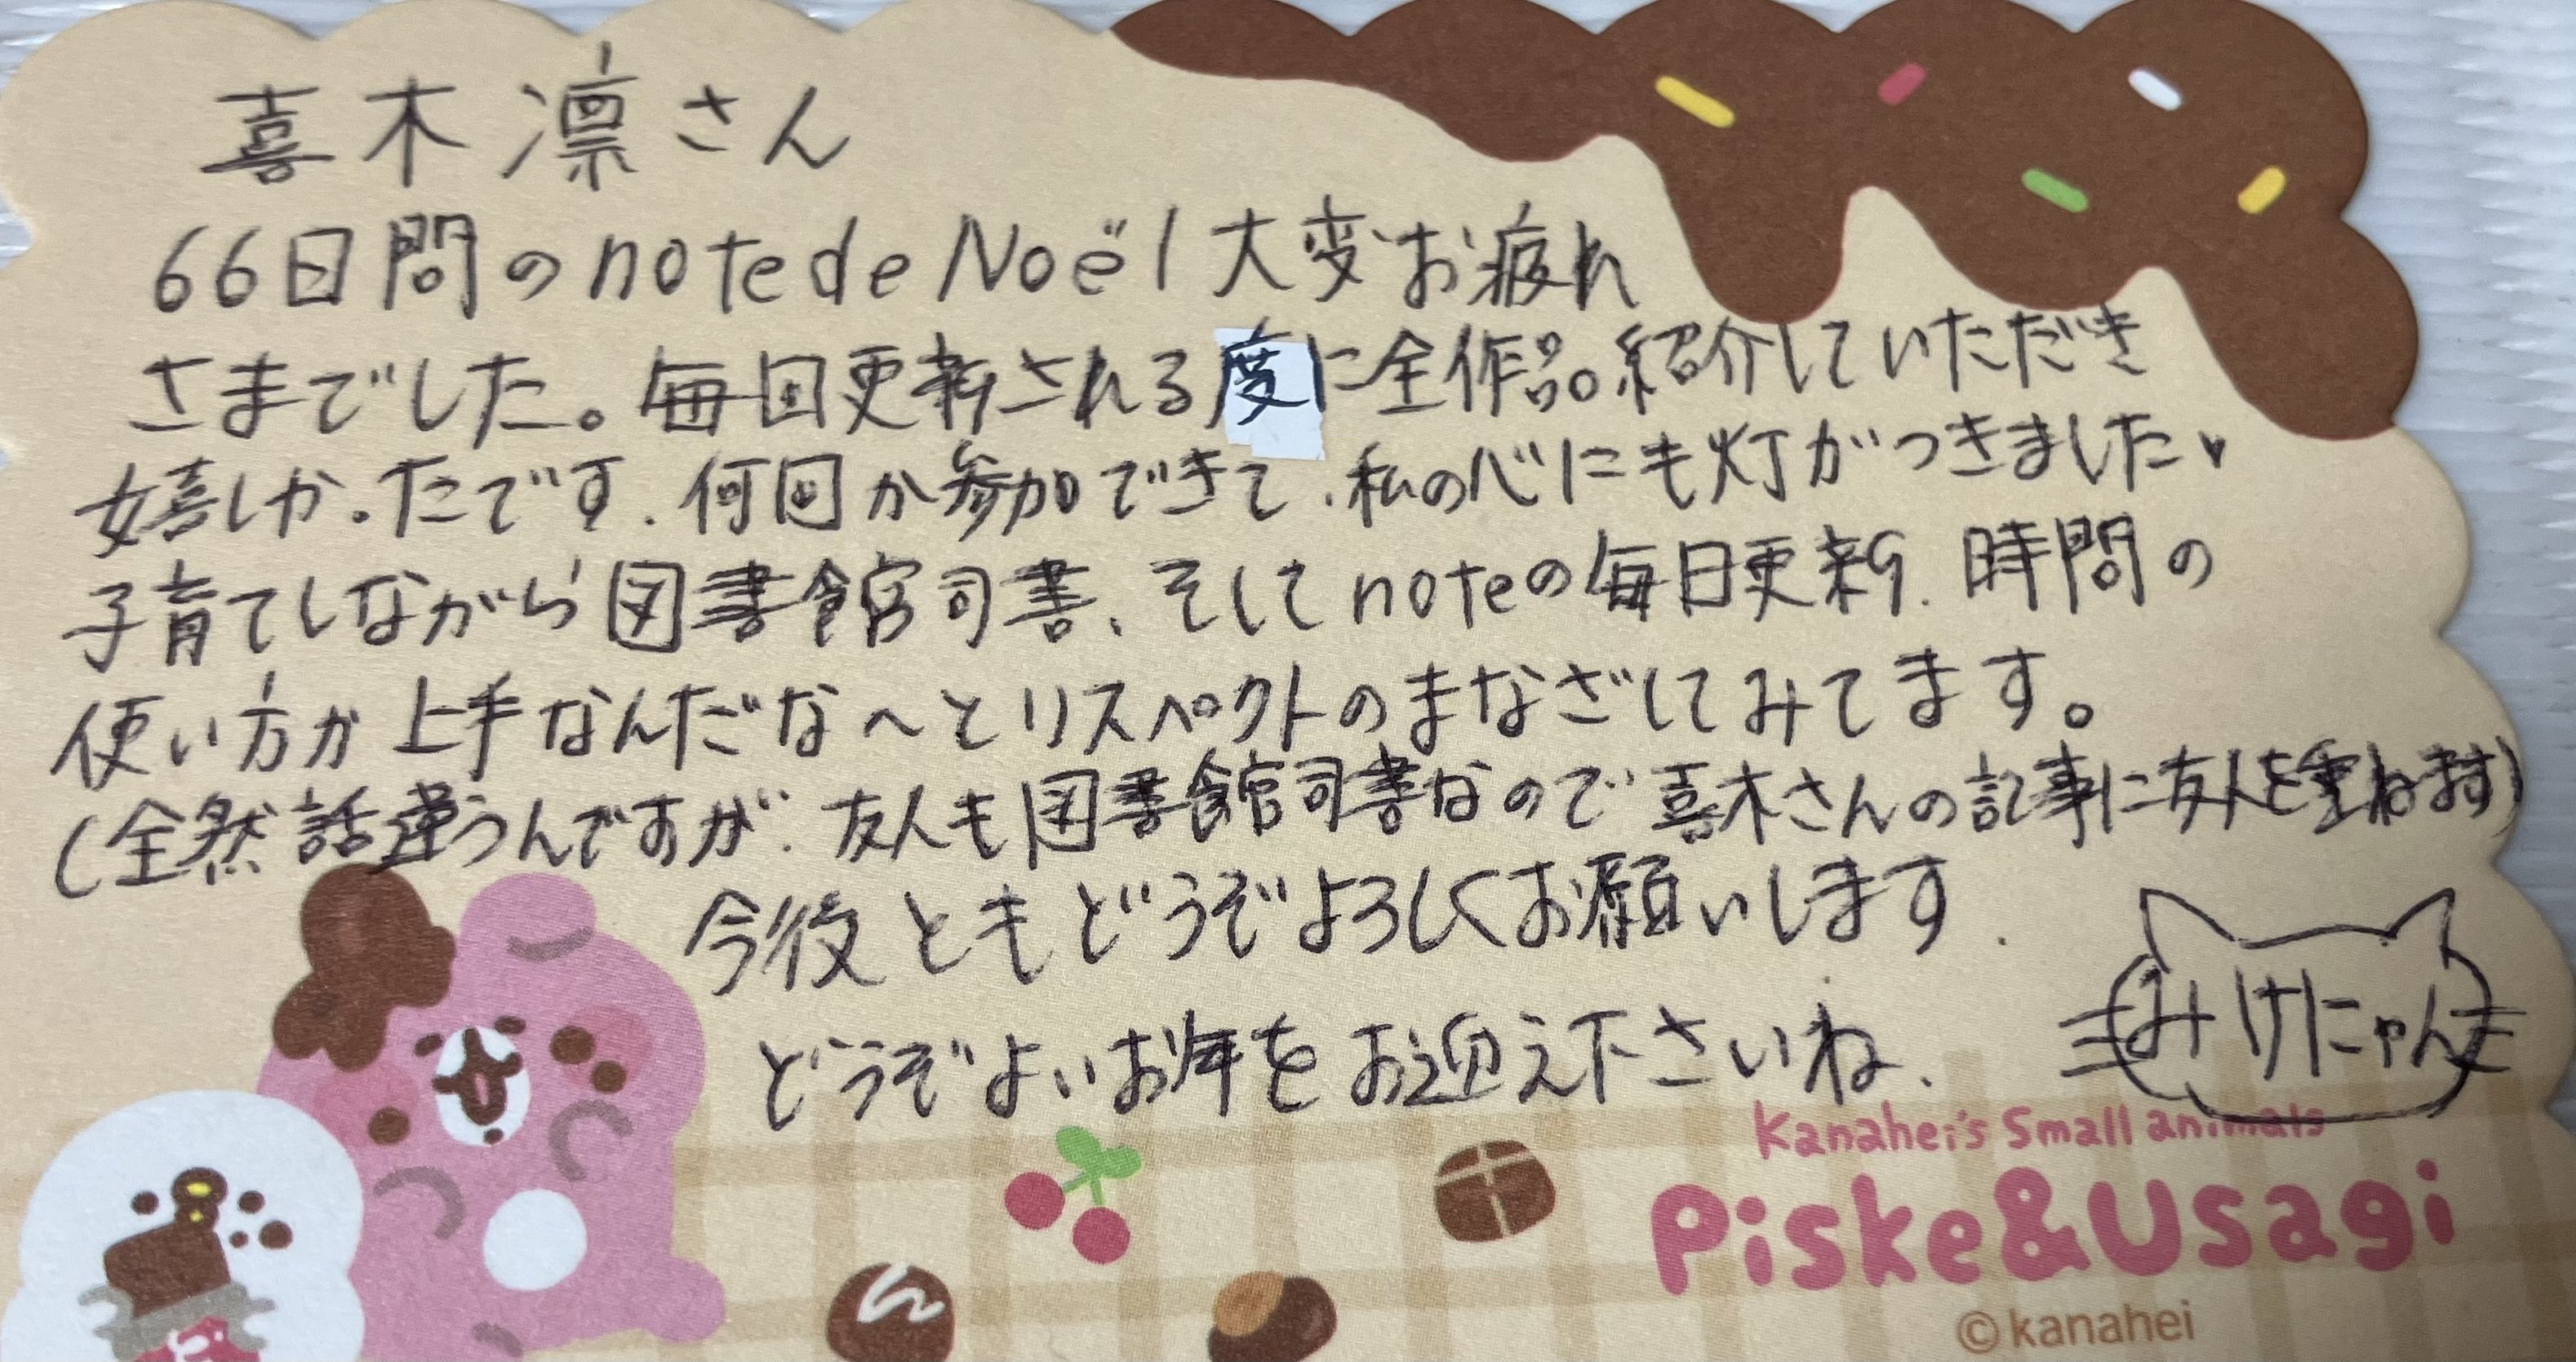 喜木凛さん
66日間のnote de Noël大変お疲れ
さまでした。毎回更新される度に全作品。紹介していただき
嬉しかったです。何回か参加できて、私の心にも灯がつきました♥
子育てしながら図書館司書、そしてnoteの毎日更新、時間の
使い方が上手なんだな〜とリスペクトのまなざしてみてます。
(全然話違うんですが、友人も図書館司書なので喜木さんの記事に友人を重ねます)
今後ともどうぞよろしくお願いします.
どうぞよいお年をお迎え下さいね、
みけにゃん
Kanahei's Small animals
Piske&Usagi
©kanahei